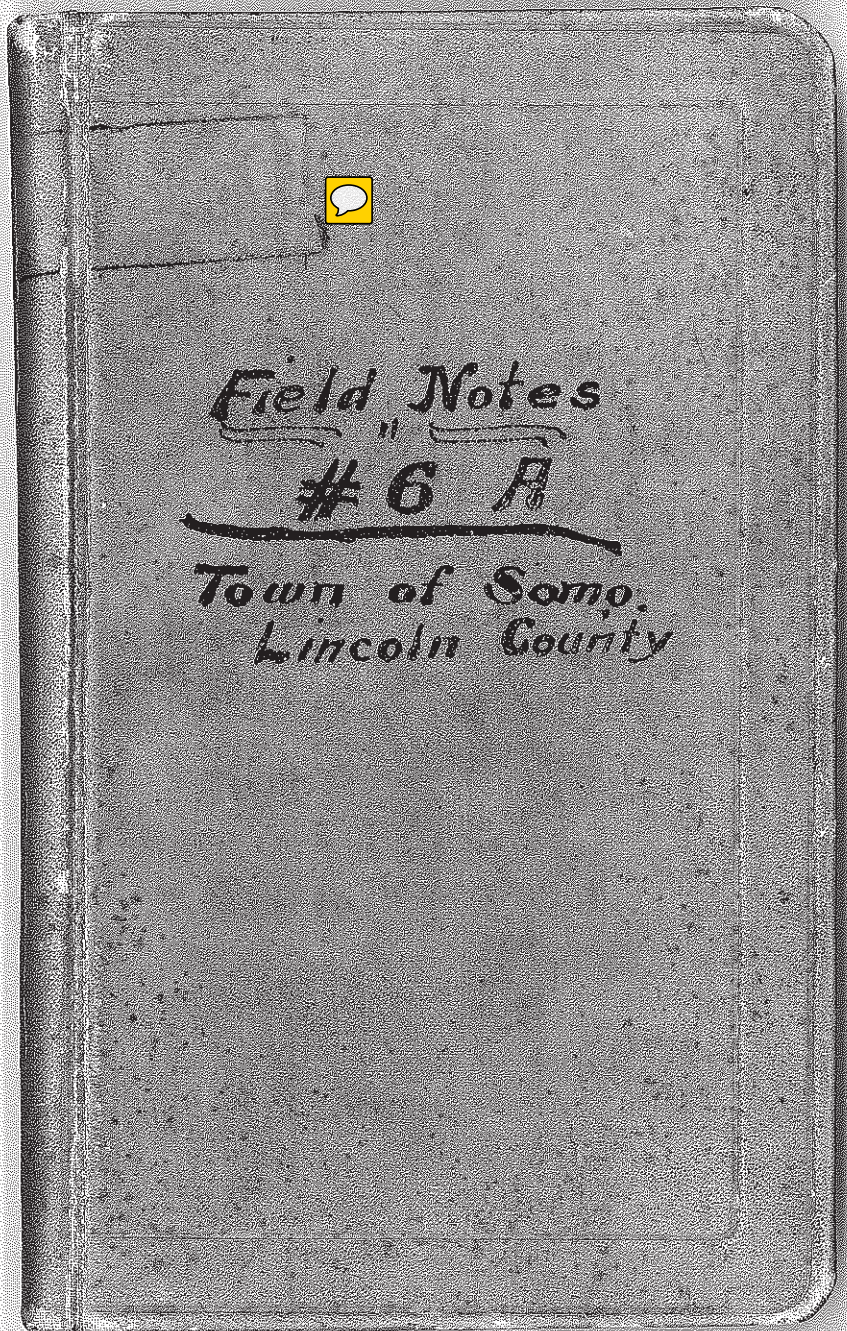 Field Notes
"
# 6 A
Town of Somo.
Lincoln County